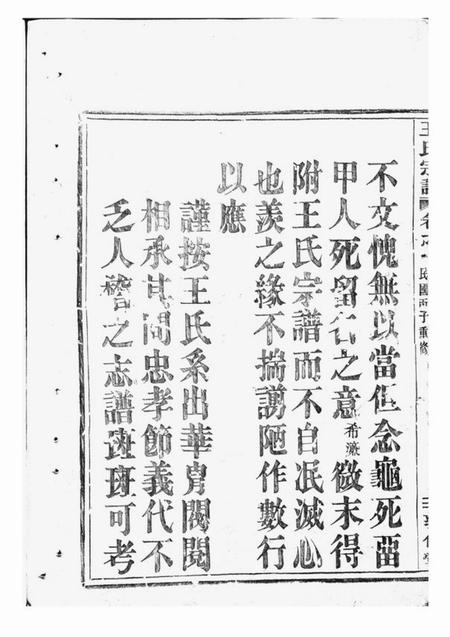 王氏宗譜 卷 民國丙子重修
不文愧無以當但念龜死留
甲人死留名之意希澂微末得
附王氏宗譜而不自泯滅心
也羨之緣不揣謭陋作數行
以應
謹按王氏系出華胄閥閱
相承其間忠孝節義代不
乏人稽之志譜斑斑可考